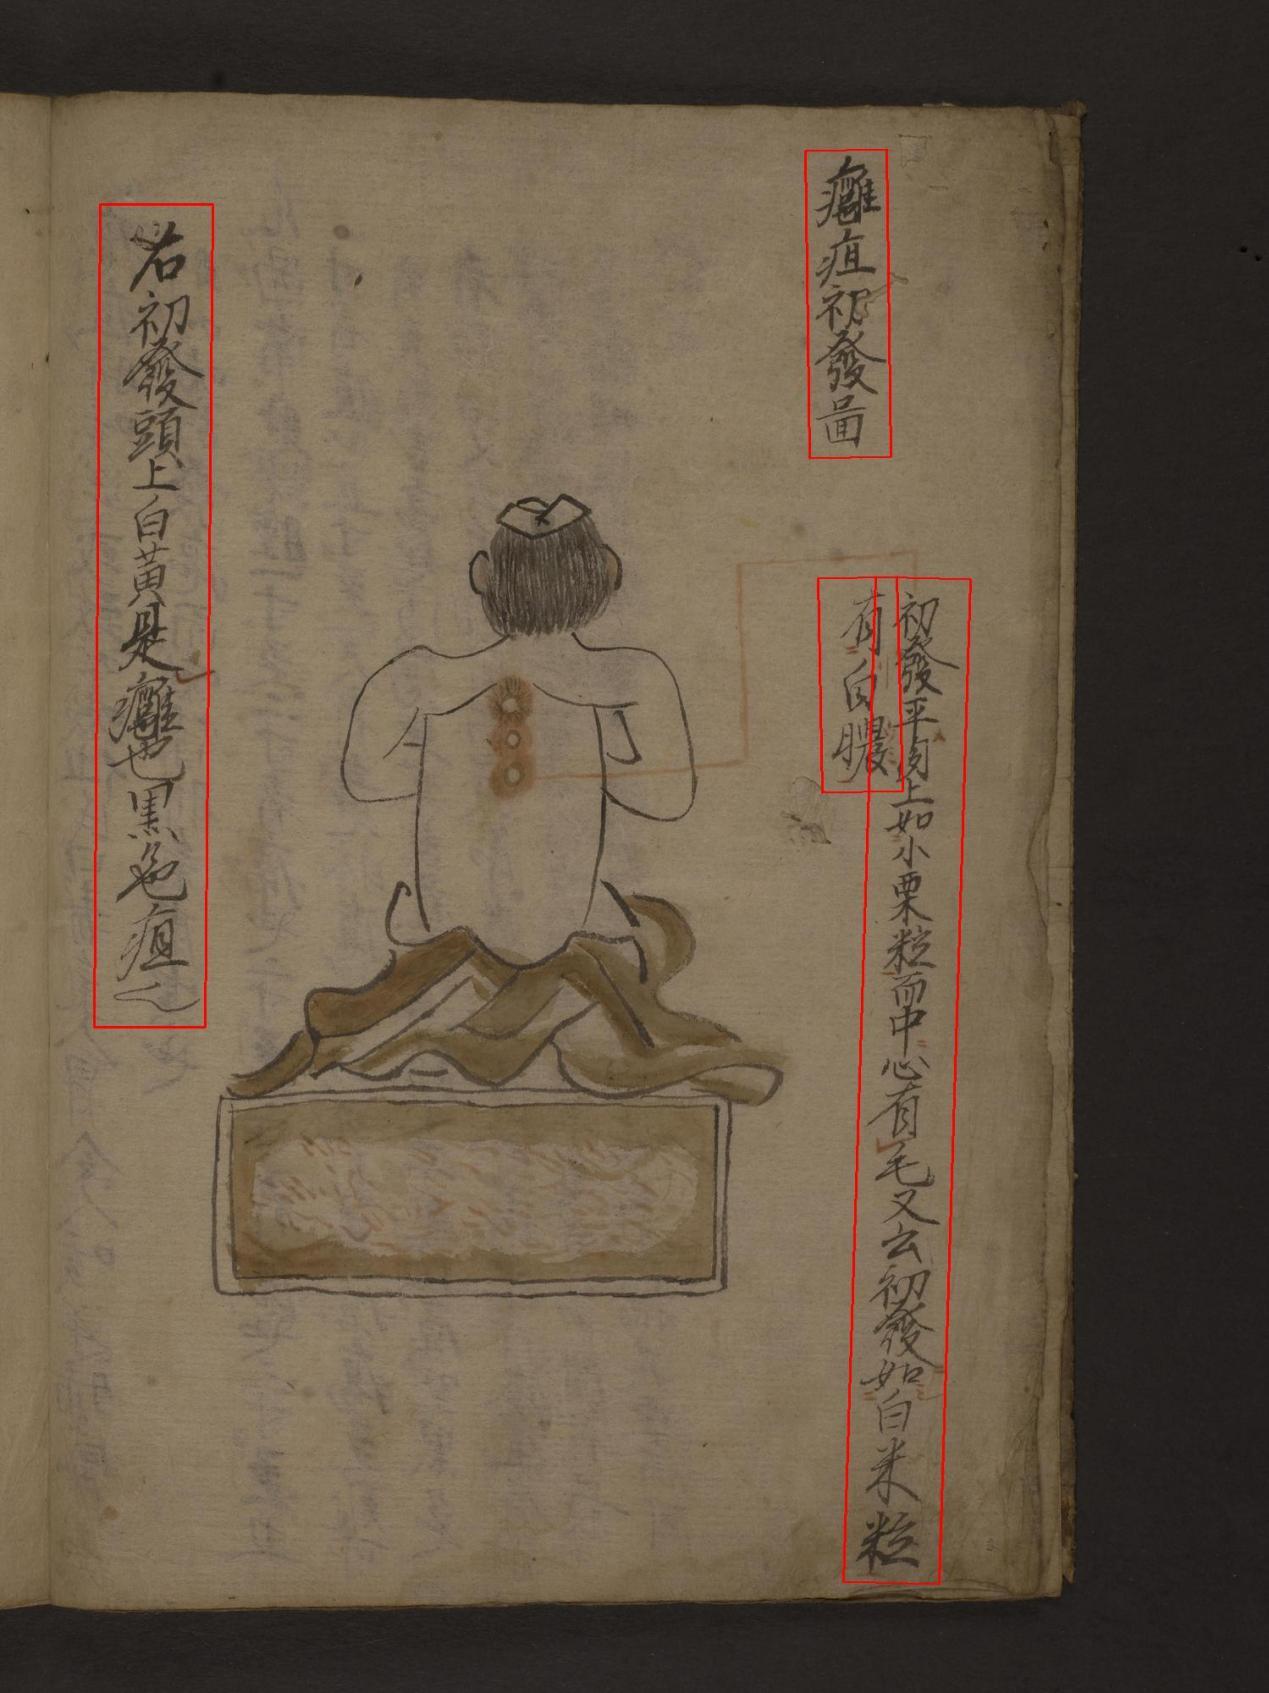 癰疽初發啚
初發平肉上如小粟粒而中心有毛又云初發如白米粒
有白膿
右初發頭上白黃是癰也黒色疽也